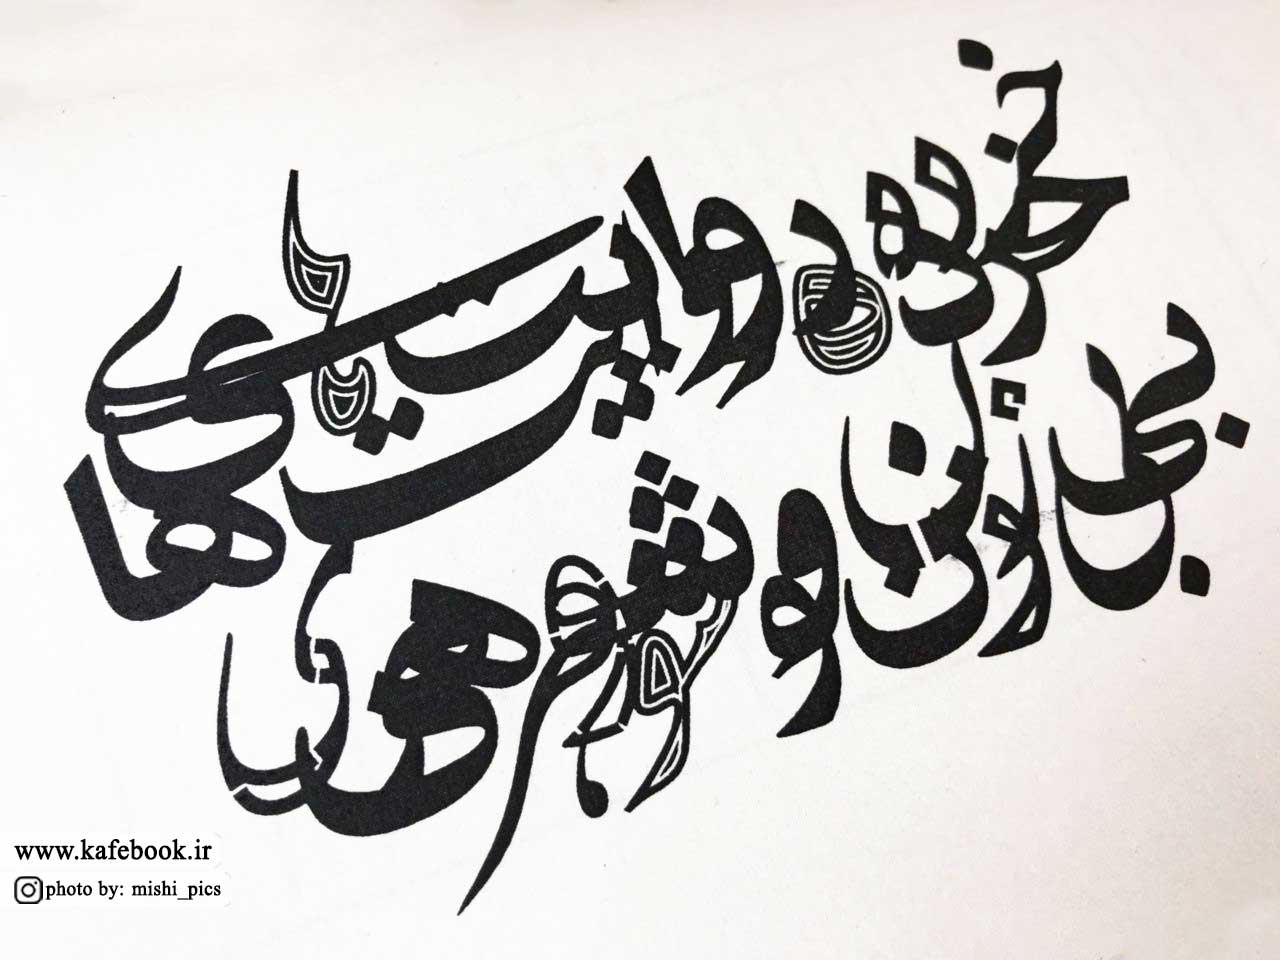 خرده روایت های
بی زن و شوهری
www.kafebook.ir
photo by: mishi_pics